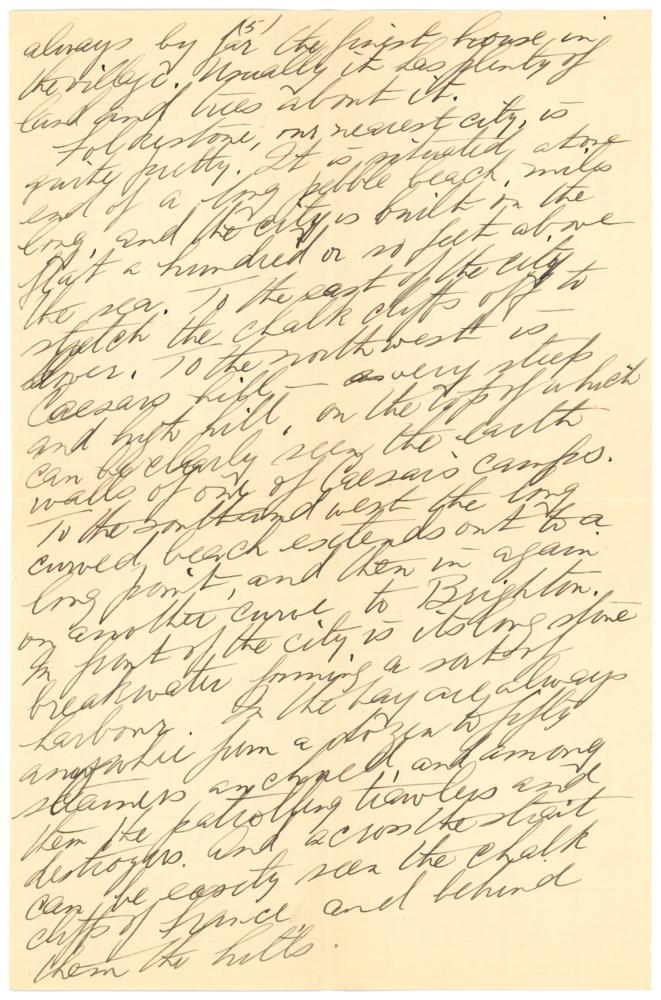 (5)
always by far the finest house in
the village. Usually it has plenty of
land and trees about it.
Folkestone, our nearest city, is
quite pretty. It is situated at one
end of a long pebble beach, miles
long, and the city is built on the
flat a hundred or so feet above
the sea. To the east of the city
stretch the chalk cliffs off to
Dover. To the northwest is
Caesars hill — a very steep
and high hill, on the top of which
can be clearly seen the earth
walls of one of Caesar's camps.
To the south and west the long
curved beach extends out to a
long point, and then in again
on another curve to Brighton.
In front of the city is its long stone
breakwater forming a sort of
harbour. In the bay are always
anywhere from a dozen to fifty
steamers anchored and among
them the patrolling trawlers and
destroyers. And across the strait
can be easily seen the chalk
cliffs of France and behind
them the hills.